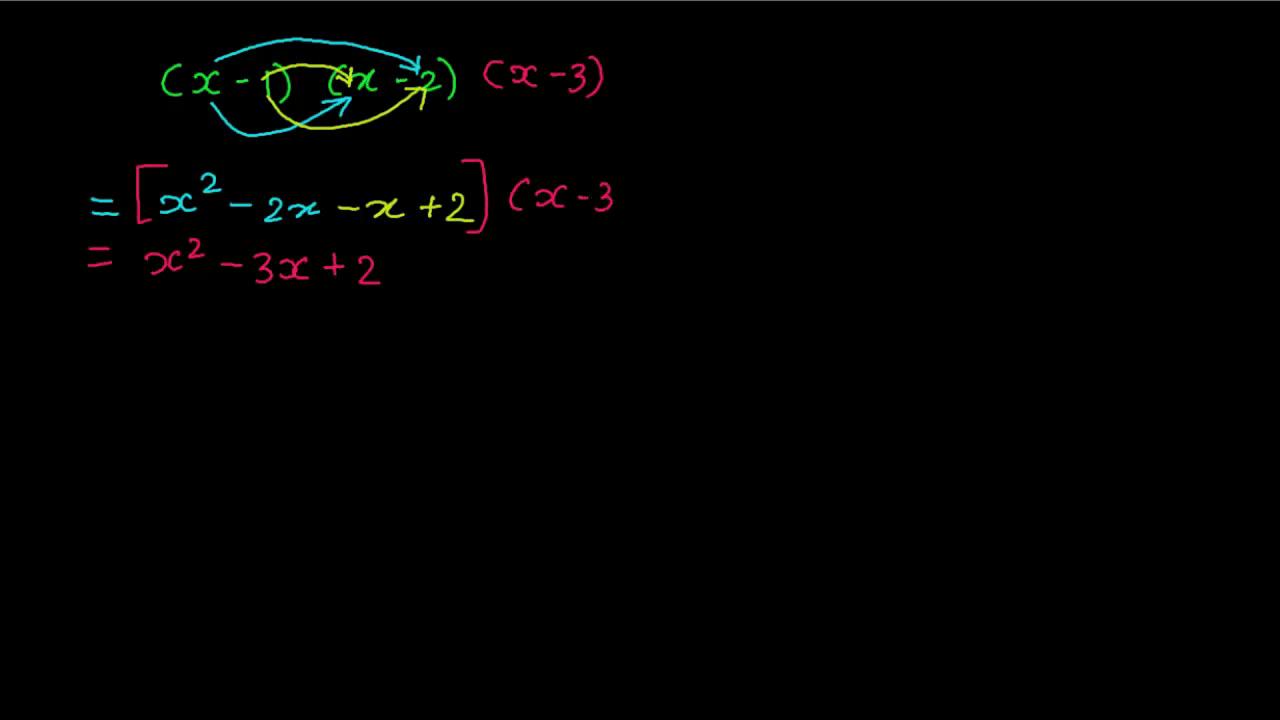 (x - 1) (x - 2) (x - 3)
= [x² - 2x - x + 2] (x - 3
= x² - 3x + 2